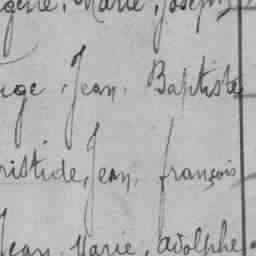 Marie, Joseph
Jean, Baptiste
ristide, Jean, françois
Jean, Marie, adolphe